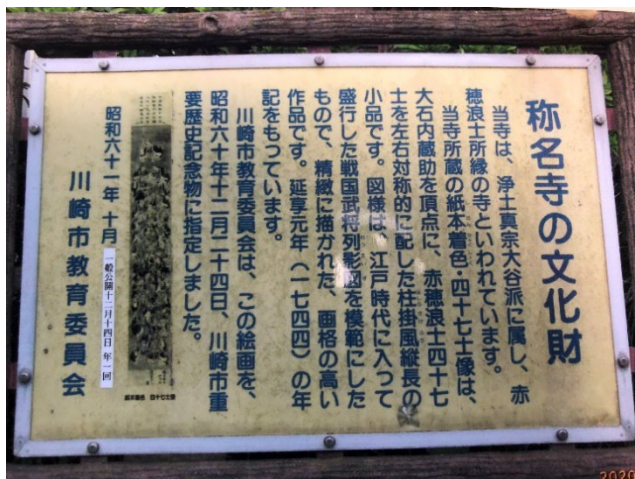 称名寺の文化財
当寺は、浄土真宗大谷派に属し、赤
穂浪士所縁の寺といわれています。
当寺所蔵の紙本着色・四十七士像は、
大石内蔵助を頂点に、赤穂浪士四十七
士を左右対称的に配した柱掛風縦長の
小品です。図様は、江戸時代に入って
盛行した戦国武将列影図を模範にした
もので、精緻に描かれた、画格の高い
作品です。延享元年（一七四四）の年
記をもっています。
川崎市教育委員会は、この絵画を、
昭和六十年十二月二十四日、川崎市重
要歴史記念物に指定しました。
紙本着色 四十七士像
昭和六十一年 十月
一般公開十二月十四日 年一回
川崎市教育委員会
2020